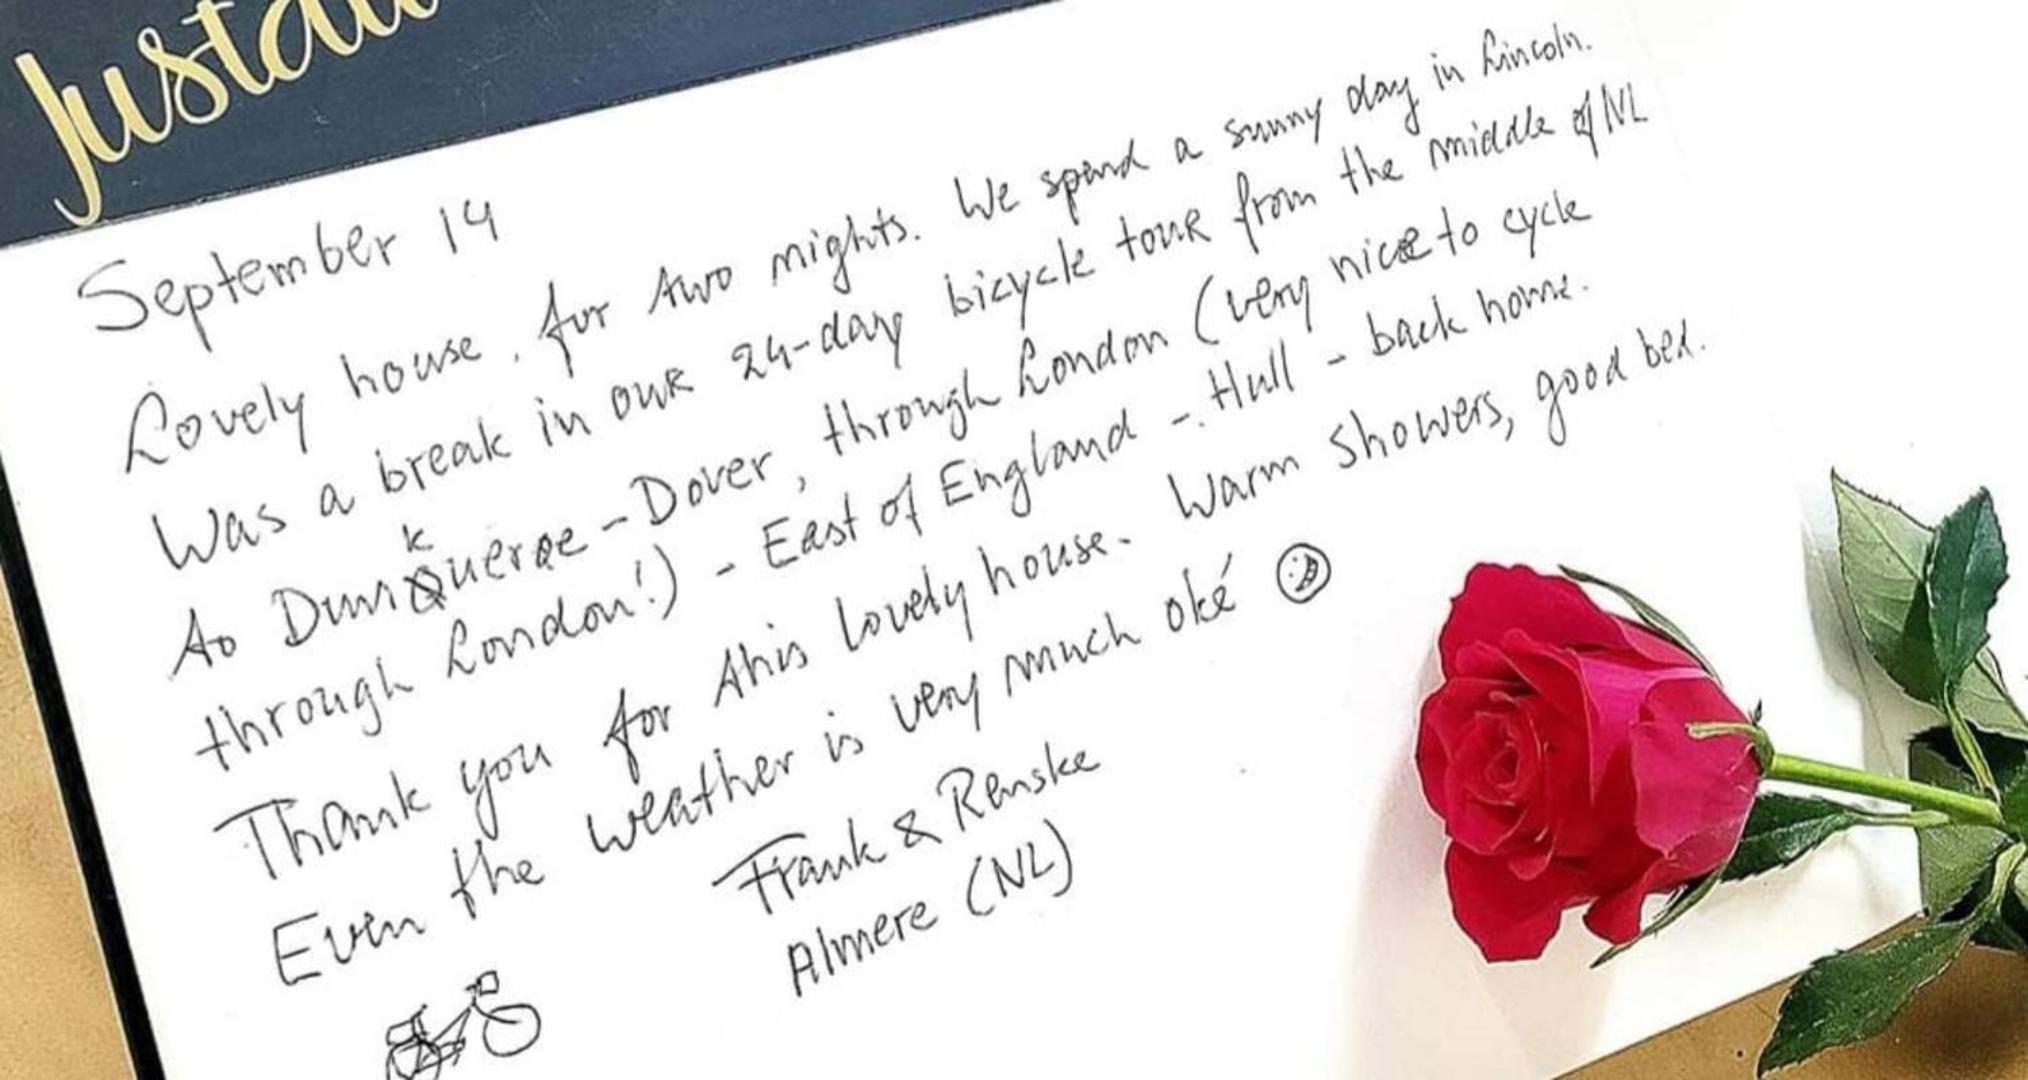 Justa
September 14
Lovely house, for two nights. We spend a sunny day in Lincoln.
Was a break in our 24-day bicycle tour from the middle of NL
to Dunkuerqe - Dover, through London (very nice to cycle
through London!) - East of England - Hull - back home.
Thank you for this lovely house. Warm showers, good bed.
Even the weather is very much oké
Frank & Renske
Almere (NL)